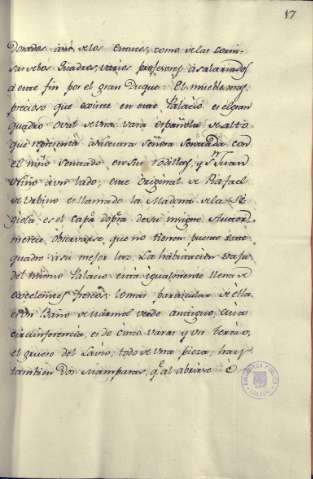 17
Dorados así de los
como de las
varios profesores asalariados
a este fin por el gran Duque. El mueble mas
precioso que existe en este Palacio es el gran
quadro oval de una vara española de alto
que representa a nuestra Señora sentada con
el niño sentado en sus rodillas, y Sn. Juan
Niño a un lado; este original de Rafael
de Urbino es llamado la Madona de la
es el capo dopra de su insigne Autor
merece observarse que no tienen puesto este
quadro en su mejor luz. La habitacion baja
del mismo Palacio está igualmente llena de
excelentes frescos; lo mas particular de ella
es un Baño de marmol verde antiguo, cuia
circunferencia, es de cinco varas y un tercio,
el grueso del Labio; todo de una pieza, hay
tambien dos mamparas, q.e al abrirse